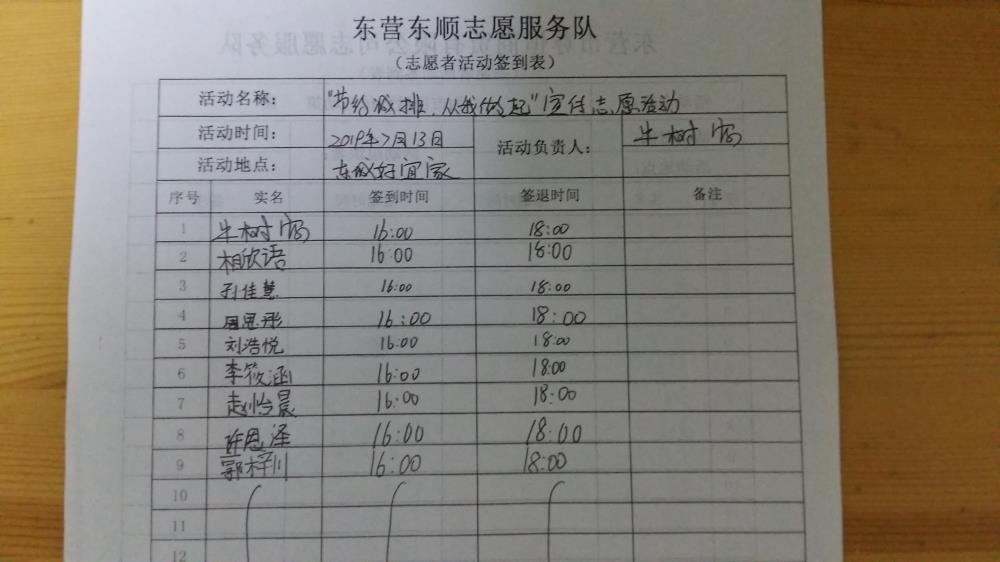 东营东顺志愿服务队
(志愿者活动签到表)
活动名称: "节约减排,从我做起"宣传志愿活动
活动时间: 2019年7月13日 活动负责人: 牛树
活动地点: 东城好宜家
序号 实名 签到时间 签退时间 备注
1 牛树 16:00 18:00
2 相欣语 16:00 18:00
3 孔佳慧 16:00 18:00
4 周思彤 16:00 18:00
5 刘浩悦 16:00 18:00
6 李筱涵 16:00 18:00
7 赵怡晨 16:00 18:00
8 许恩泽 16:00 18:00
9 郭梓川 16:00 18:00
10
11
12